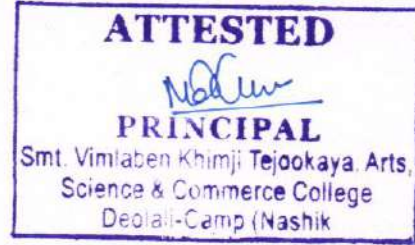 ATTESTED
PRINCIPAL
Smt. Vimlaben Khimji Tejookaya. Arts,
Science & Commerce College
Deolali-Camp (Nashik